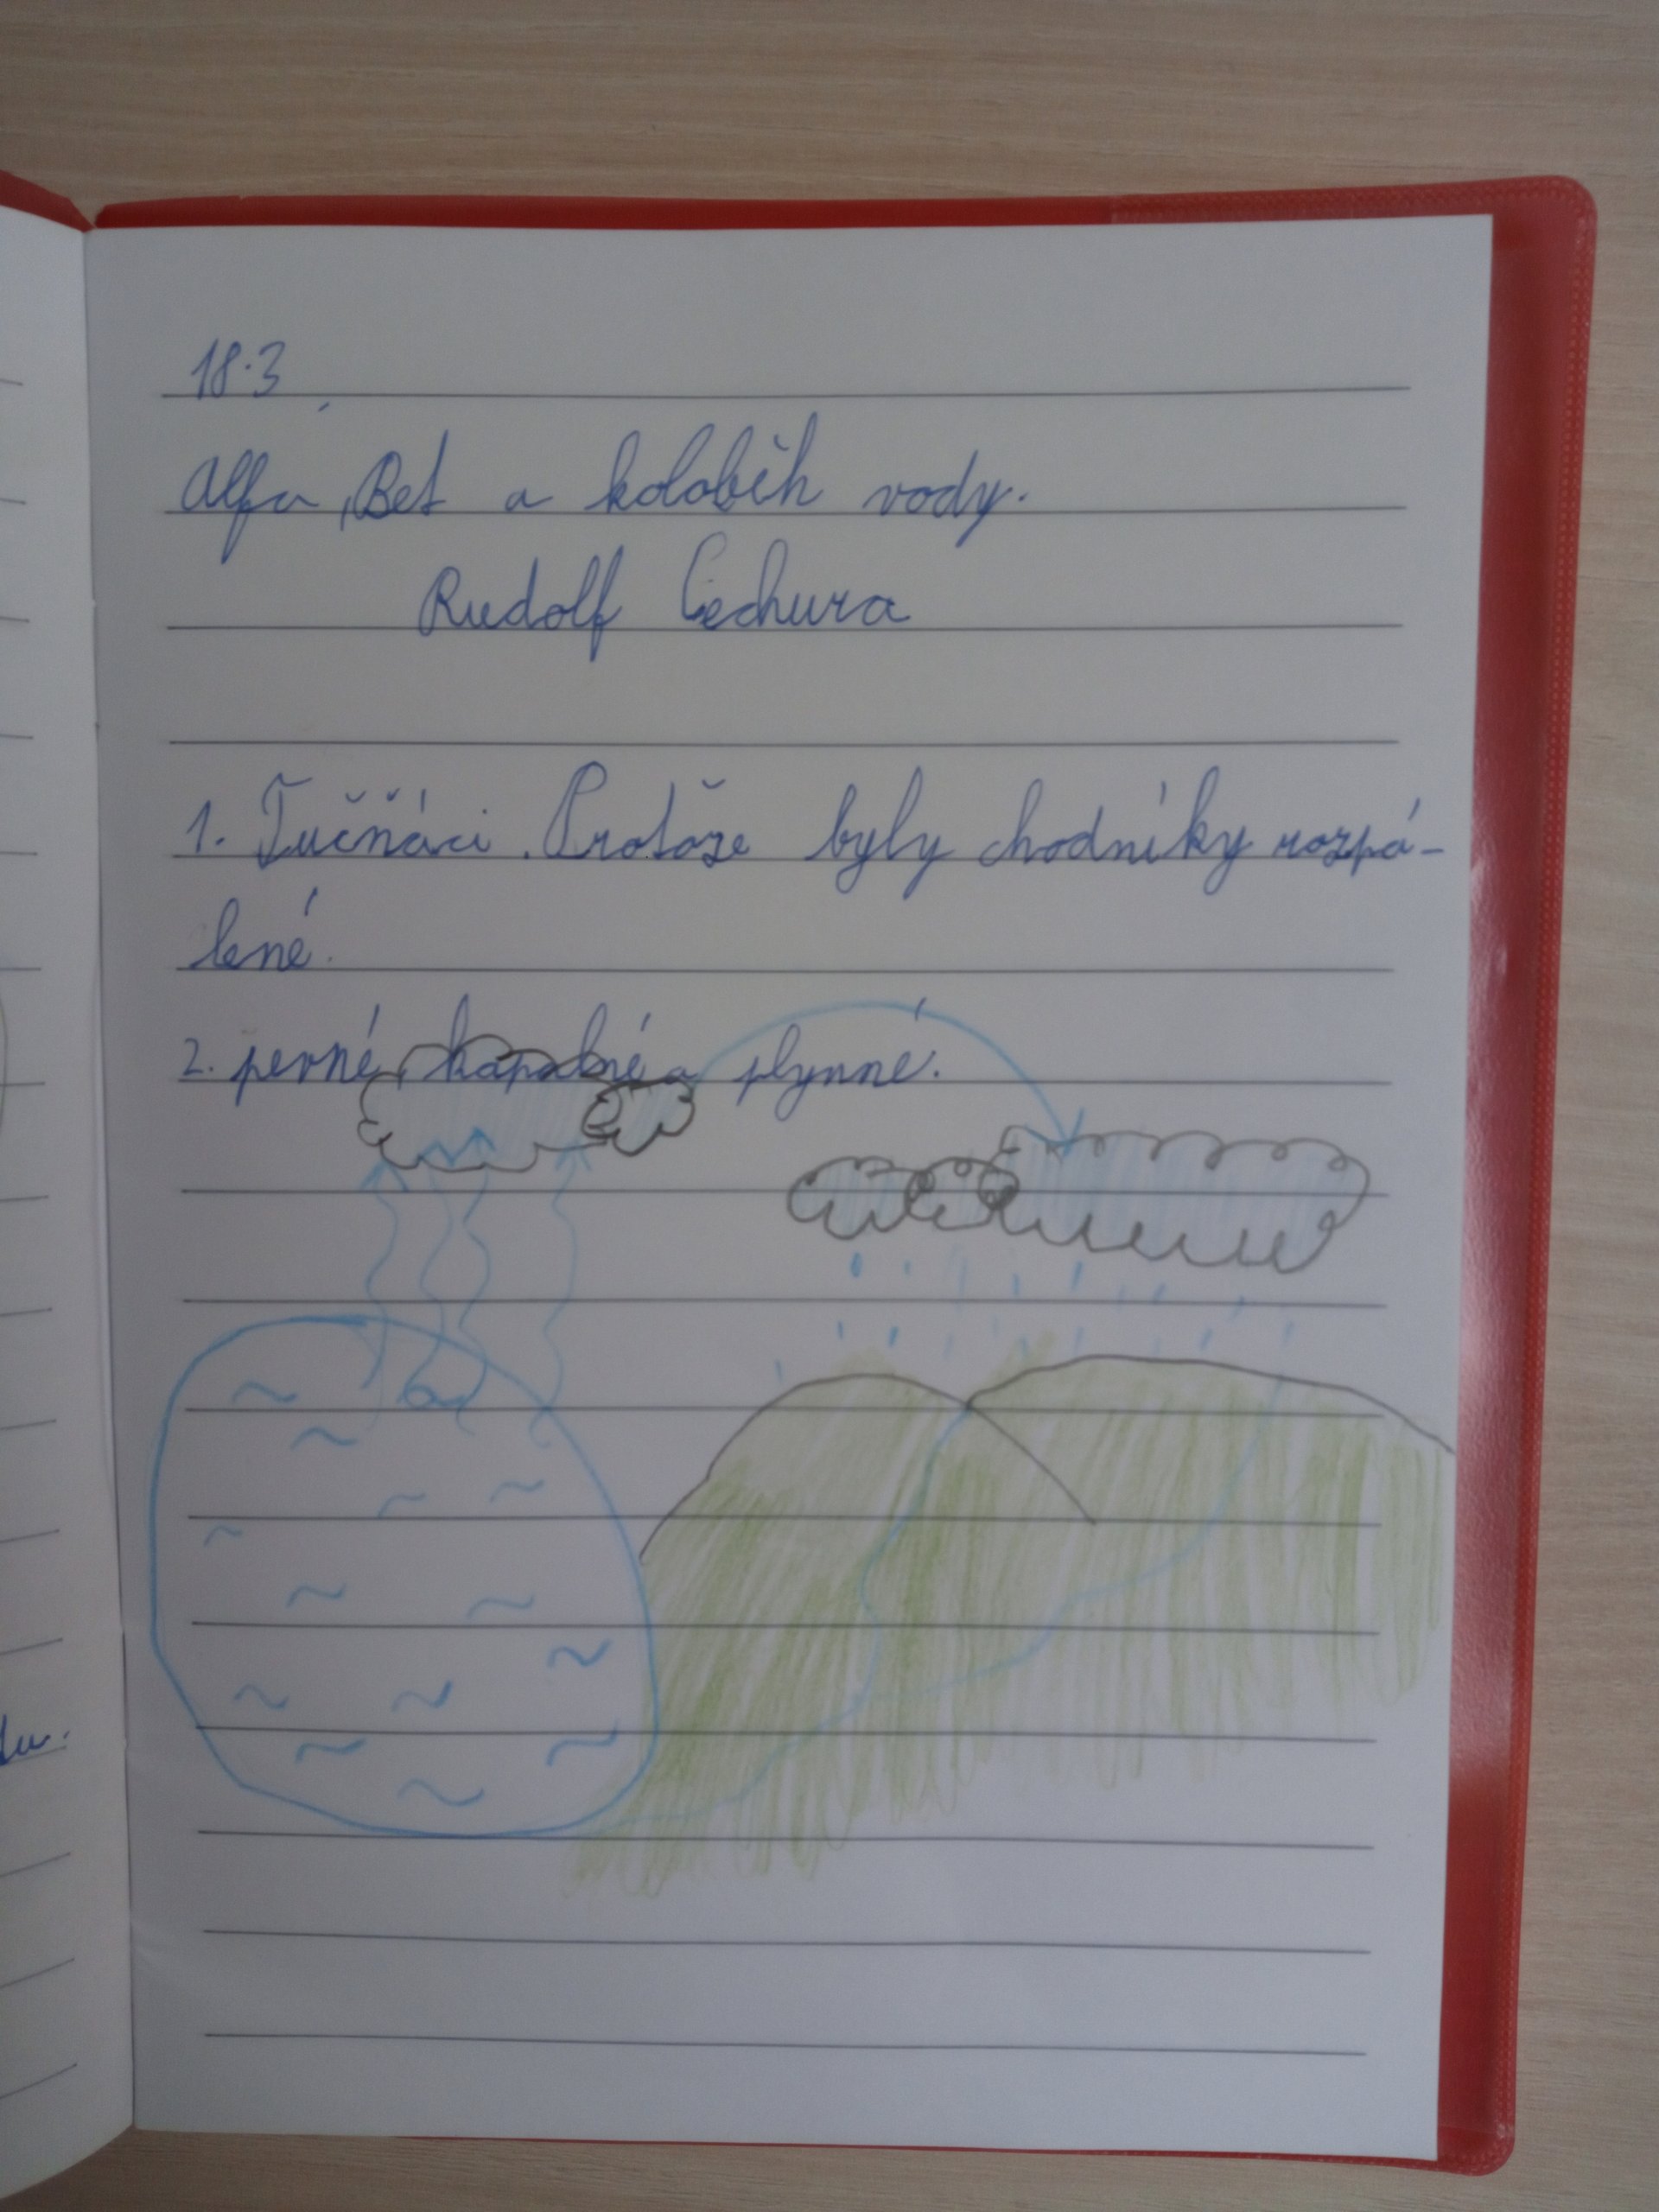 18.3
Alfa, Bet a koloběh vody.
Rudolf Čechura
1. Tučňáci. Protože byly chodníky rozpá-
lené.
2. pevné, kapalné a plynné.